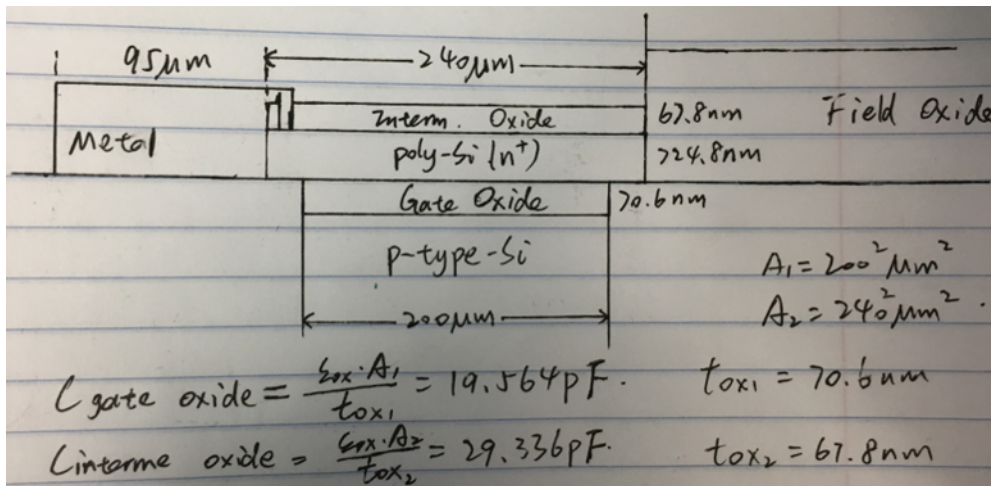 95μm
240μm
Interm. Oxide
67.8nm
Field Oxide
Metal
poly-Si (n⁺)
724.8nm
Gate Oxide
70.6nm
p-type-Si
A₁=200²μm²
200μm
A₂=240²μm².
Cgate oxide = εox·A₁/tox₁ = 19.564pF.
tox₁ = 70.6nm
Cinterme oxide = εox·A₂/tox₂ = 29.336pF.
tox₂ = 67.8nm